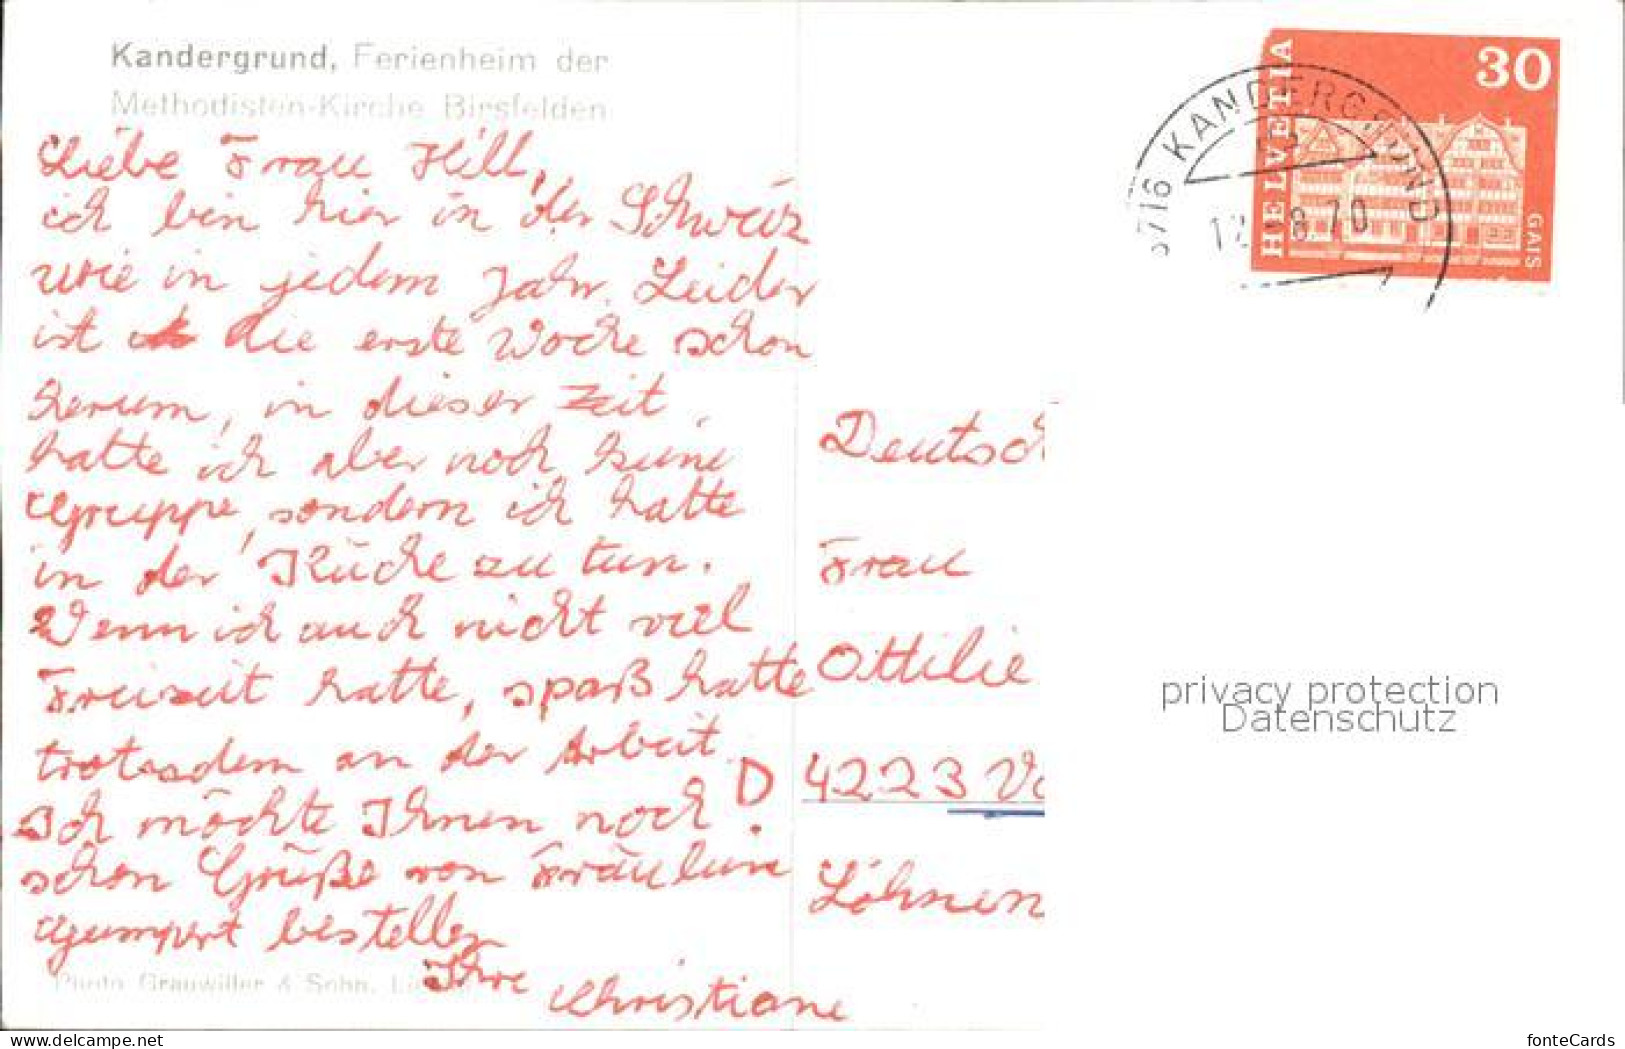 Kandergrund, Ferienheim der
Methodisten-Kirche Birsfelden
Liebe Frau Hill,
ich bin hier in der Schweiz
wie in jedem Jahr. Leider
ist die erste Woche schon
herum, in dieser Zeit
hatte ich aber noch keine
Gruppe, sondern ich hatte
in der Küche zu tun.
Wenn ich auch nicht viel
Freizeit hatte, spaß hatte
trotzdem an der Arbeit.
Ich möchte Ihnen noch
schon Grüße von Fräulein
Gumpert bestellen
Ihre Christiane
Photo Grauwiller & Sohn,
HELVETIA
30
GAIS
3716 KANDERGRUND
12.-8.70
Deutsch
Frau
Ottilie
D 4223 Vo
Löhnen
privacy protection
Datenschutz
www.delcampe.net
fonteCards